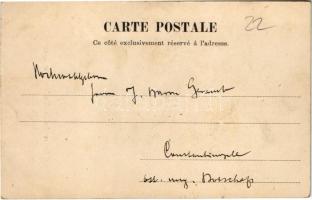 CARTE POSTALE
22
Ce côté exclusivement réservé à l'adresse.
Hochwohlgeboren
Herrn J. Baron
Constantinople
öst. ung. Botschaft